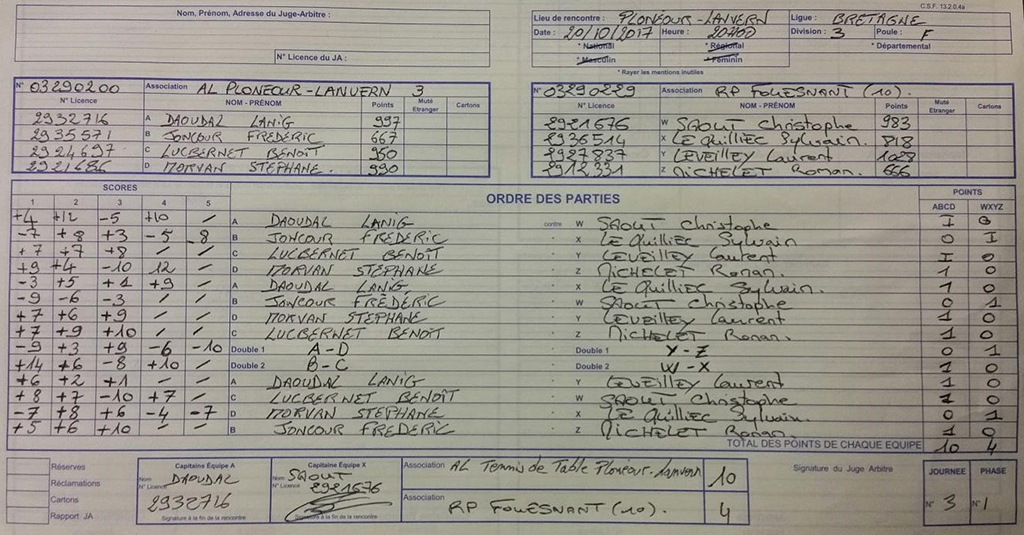 C.S.F. 13.2.0.4a
Nom, Prénom, Adresse du Juge-Arbitre :
N° Licence du JA :
Lieu de rencontre : PLONÉOUR-LANVERN Ligue : BRETAGNE
Date : 20/10/2017 Heure : 20H00 Division : 3 Poule : F
* National * Régional * Départemental
* Masculin * Féminin
* Rayer les mentions inutiles
N° 03290200 Association AL PLONEOUR-LANVERN 3
N° Licence NOM - PRÉNOM Points Muté Etranger Cartons
2932716 A DAOUDAL LANIG 997
2935571 B JONCOUR FREDERIC 667
2924697 C LUCBERNET BENOÎT 950
2921686 D MORVAN STEPHANE. 990
N° 03290229 Association RP FOUESNANT (10).
N° Licence NOM - PRÉNOM Points Muté Etranger Cartons
2921676 W SAOUT Christophe 983
2936514 X LE QUILLIEC Sylvain. 818
2927837 Y LEVEILLEY Laurent 1028
2912331 Z MICHELET Ronan. 666
SCORES ORDRE DES PARTIES POINTS
1 2 3 4 5 ABCD WXYZ
+4 +12 -5 +10 / A DAOUDAL LANIG contre W SAOUT Christophe I 0
-7 +8 +3 -5 -8 B JONCOUR FREDERIC X LE QUILLIEC Sylvain 0 I
+7 +7 +8 / / C LUCBERNET BENOÎT Y LEVEILLEY Laurent I 0
+9 +4 -10 12 / D MORVAN STEPHANE Z MICHELET Ronan. 1 0
-3 +5 +1 +9 / A DAOUDAL LANIG X LE QUILLIEC Sylvain. 1 0
-9 -6 -3 / / B JONCOUR FRÉDÉRIC W SAOUT Christophe 0 1
+7 +6 +9 / / D MORVAN STEPHANE Y LEVEILLEY Laurent 1 0
+7 +9 +10 / / C LUCBERNET BENOÎT Z MICHELET Ronan. 1 0
-9 +3 +9 -6 -10 Double 1 A-D Double 1 Y-Z 0 1
+14 +6 -8 +10 / Double 2 B-C Double 2 W-X 1 0
+6 +2 +1 / / A DAOUDAL LANIG Y LEVEILLEY Laurent 1 0
+8 +7 -10 +7 / C LUCBERNET BENOÎT W SAOUT Christophe 1 0
-7 +8 +6 -4 -7 D MORVAN STEPHANE X LE QUILLIEC Sylvain. 0 1
+5 +6 +10 / / B JONCOUR FREDERIC Z MICHELET Ronan. 1 0
TOTAL DES POINTS DE CHAQUE EQUIPE 10 4
Réserves
Réclamations
Cartons
Rapport JA
Capitaine Équipe A
Nom DAOUDAL
N° Licence
2932716
Signature à la fin de la rencontre
Capitaine Équipe X
Nom SAOUT
N° Licence 2921676
Signature à la fin de la rencontre
Association AL Tennis de Table Plonéour-Lanvern 10
Association RP FOUESNANT (10). 4
Signature du Juge Arbitre
JOURNEE PHASE
N° 3 N° 1